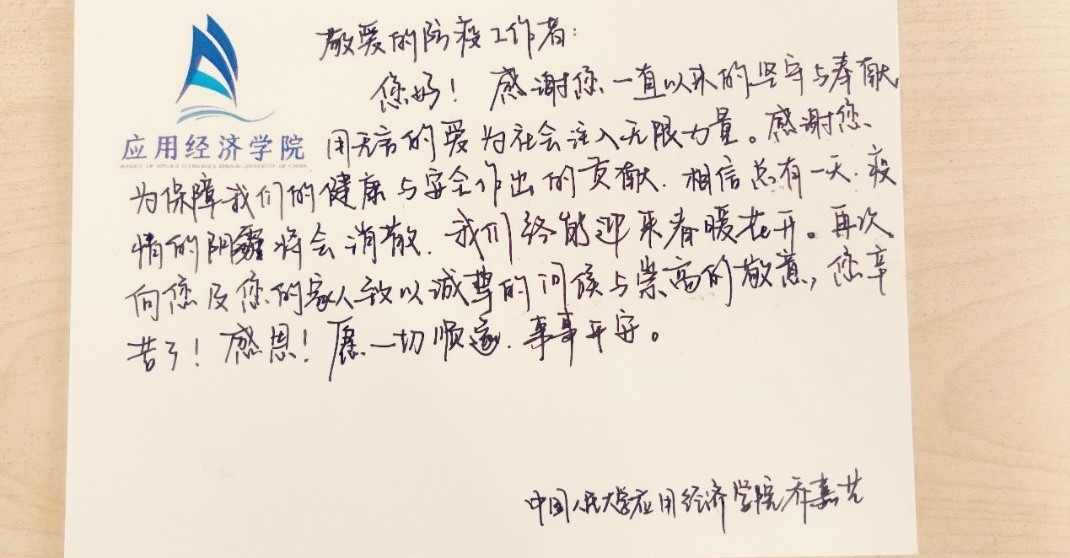 敬爱的防疫工作者：
您好！感谢您一直以来的坚守与奉献，
应用经济学院
SCHOOL OF APPLIED ECONOMICS RENMIN UNIVERSITY OF CHINA
用无言的爱为社会注入无限力量。感谢您
为保障我们的健康与安全作出的贡献，相信总有一天，疫
情的阴霾将会消散，我们终能迎来春暖花开。再次
向您及您的家人致以诚挚的问候与崇高的敬意，您辛
苦了！感恩！愿一切顺遂，事事平安。
中国人民大学应用经济学院乔嘉艺